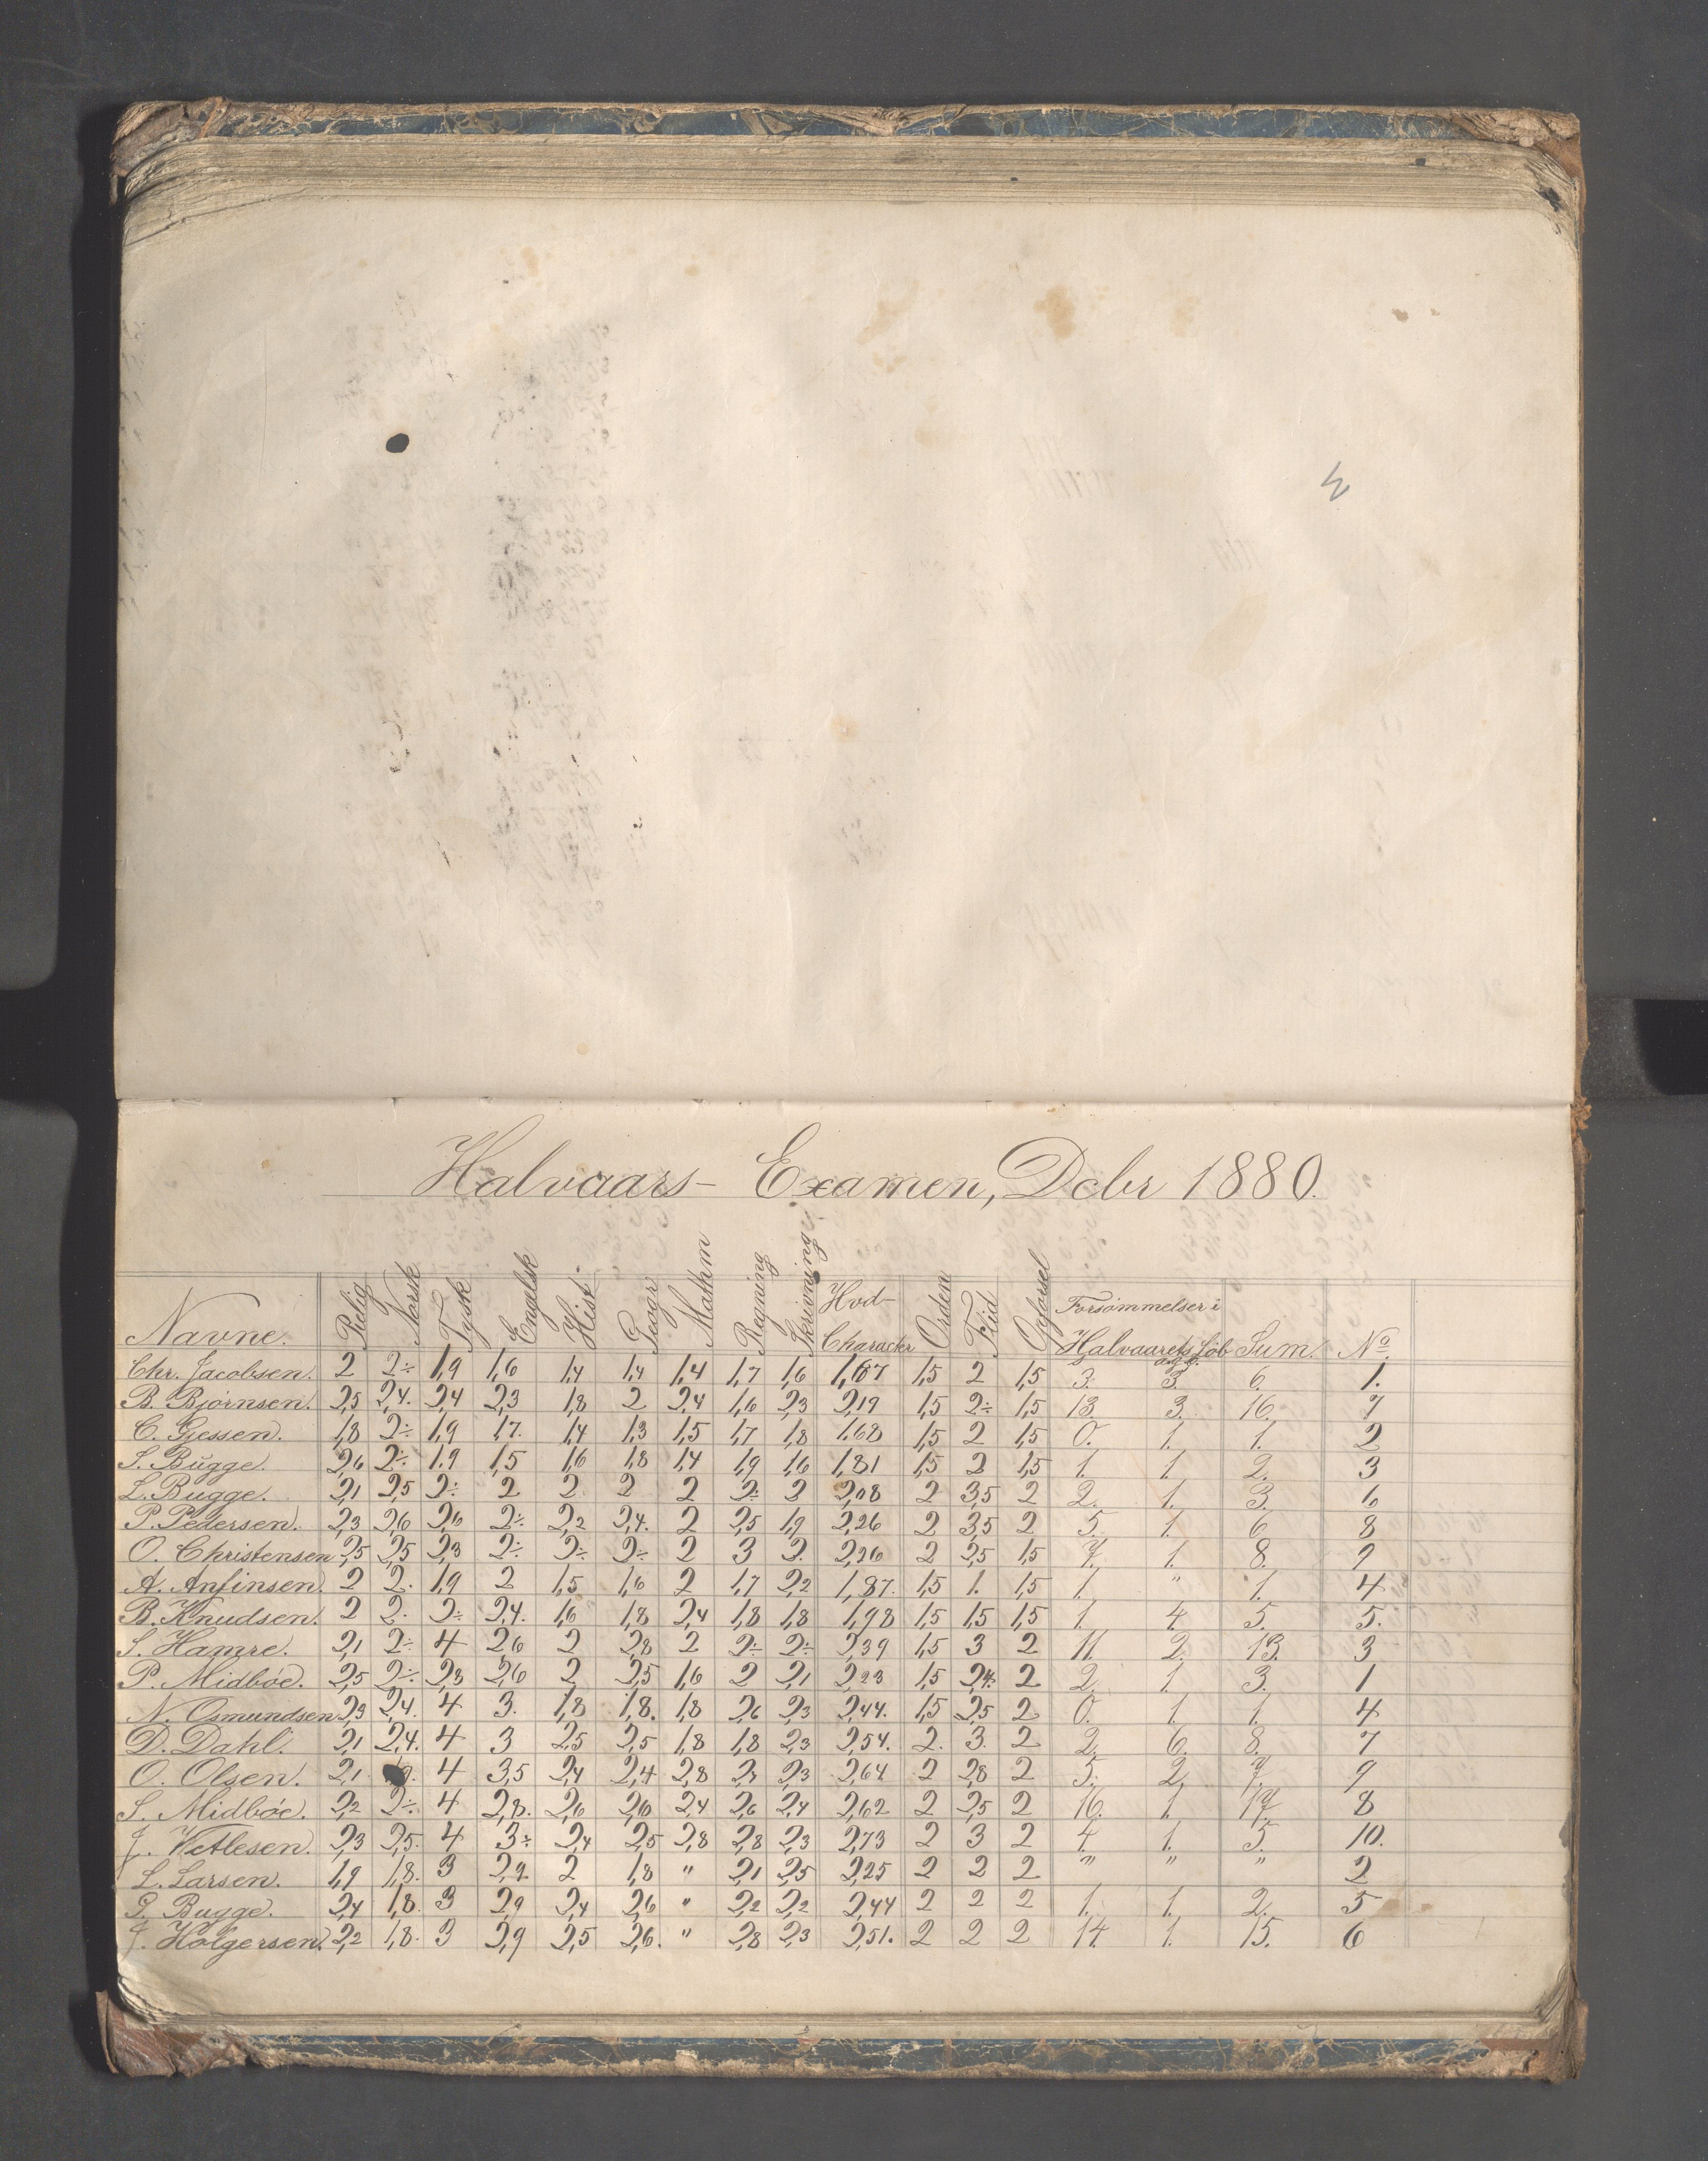 Halvaars- Examen, Dcbr 1880.
Navne. Relig Norsk Tysk Engelsk Hist. Geogr Mathm Regning Skrivning Hvd- Character Orden Flid Opførsel Forsømmelser i Halvaarets Løb Sum. No.
Chr. Jacobsen. 2 2÷ 1,9 1,6 1,4 1,4 1,4 1,7 1,6 1,67 1,5 2 1,5 3. 3. 6. 1.
B. Bjørnsen. 2,5 2,4. 2,4 2,3 1,8 2 2,4 1,6 2,3 2,19 1,5 2÷ 1,5 13. 3. 16. 7
C. Gjessen. 1,8 2÷ 1,9 1,7. 1,4 1,3 1,5 1,7 1,8 1.68 1,5 2 1,5 0. 1. 1. 2
S. Bugge. 2,6 2÷ 1.9 1,5 1,6 1,8 1,4 1,9 1,6 1,81 1,5 2 1,5 1. 1. 2. 3
L. Bugge. 2,1 2,5 2÷ 2 2 2 2 2÷ 2 2,08 2 3,5 2 2. 1. 3. 6
P. Pedersen. 2,3 2,6 2,6 2÷ 2,2 2,4. 2 2,5 1,9 2,26 2 3,5 2 5. 1. 6. 8
O. Christensen 2,5 2,5 2,8 2÷ 2÷ 2÷ 2 3 2. 2,26 2 2,5 1,5 7. 1. 8. 9
A. Anfinsen. 2 2. 1,9 2 1,5 1,6 2 1,7 2,2 1,87. 1,5 1. 1,5 1. " 1. 4
B. Knudsen. 2 2. 2÷ 2,4. 1,6 1,8 2,4 1,8 1,8 1,98 1,5 1,5 1,5 1. 4. 5. 5.
S. Hamre. 2,1 2÷ 4 2,6 2 2,8 2 2÷ 2÷ 2,39 1,5 3 2 11. 2. 13. 3
P. Midbøe. 2,5 2÷ 2,8 2,6 2 2,5 1,6 2 2,1 2,23 1,5 2,4. 2 2. 1. 3. 1
N. Osmundsen 2,3 2,4. 4 3. 1,8 1,8. 1,8 2,6 2,3 2,44. 1,5 2,5 2 0. 1. 1. 4
D. Dahl. 2,1 2,4. 4 3 2,5 2,5 1,8 1,8 2,3 2,54. 2. 3. 2 2. 6. 8. 7
O. Olsen. 2,1 4 3,5 2,4 2,4 2,8 2,3 2,64 2 2,8 2 5. 2. 7. 9
S. Midbøe. 2,2 2÷ 4 2,8. 2,6 2,6 2,4 2,6 2,4 2,62 2 2,5 2 16. 1. 17 8
J. Vetlesen. 2,3 2,5. 4 3÷ 2,4 2,5 2,8 2,8 2,3 2,73 2 3 2 4. 1. 5. 10.
L. Larsen. 1,9 1,8. 3 2,9 2 1,8 " 2,1 2,5 2,25 2 2 2 " " " 2
G. Bugge. 2,4 1,8. 3 2,9 2,4 2,6 " 2,2 2,2 2,44 2 2 2 1. 1. 2. 5
J. Holgersen. 2,2 1,8. 3 2,9 2,5 2,6. " 2,8 2,3 2,51. 2 2 2 14. 1. 15. 6